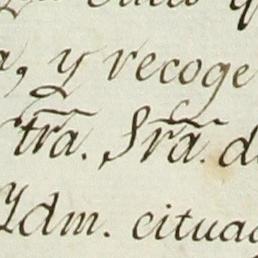 , y recoge
tra. Sra. d
Ydm. cituac